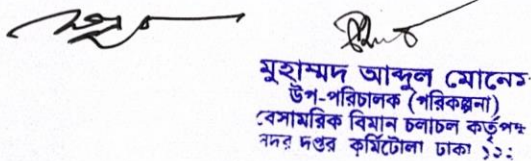 মুহাম্মদ আব্দুল মোনেম
উপ-পরিচালক (পরিকল্পনা)
বেসামরিক বিমান চলাচল কর্তৃপক্ষ
সদর দপ্তর কুর্মিটোলা ঢাকা